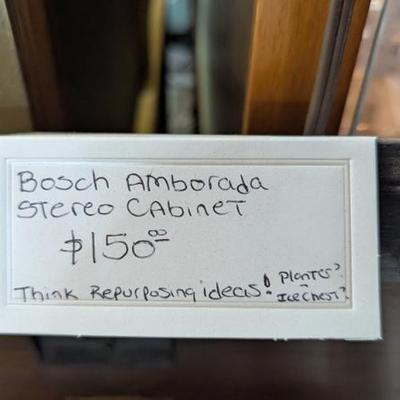 Bosch Amborada
Stereo Cabinet
$150⁰⁰
Think Repurposing ideas! Plantes?
Ice Chest?